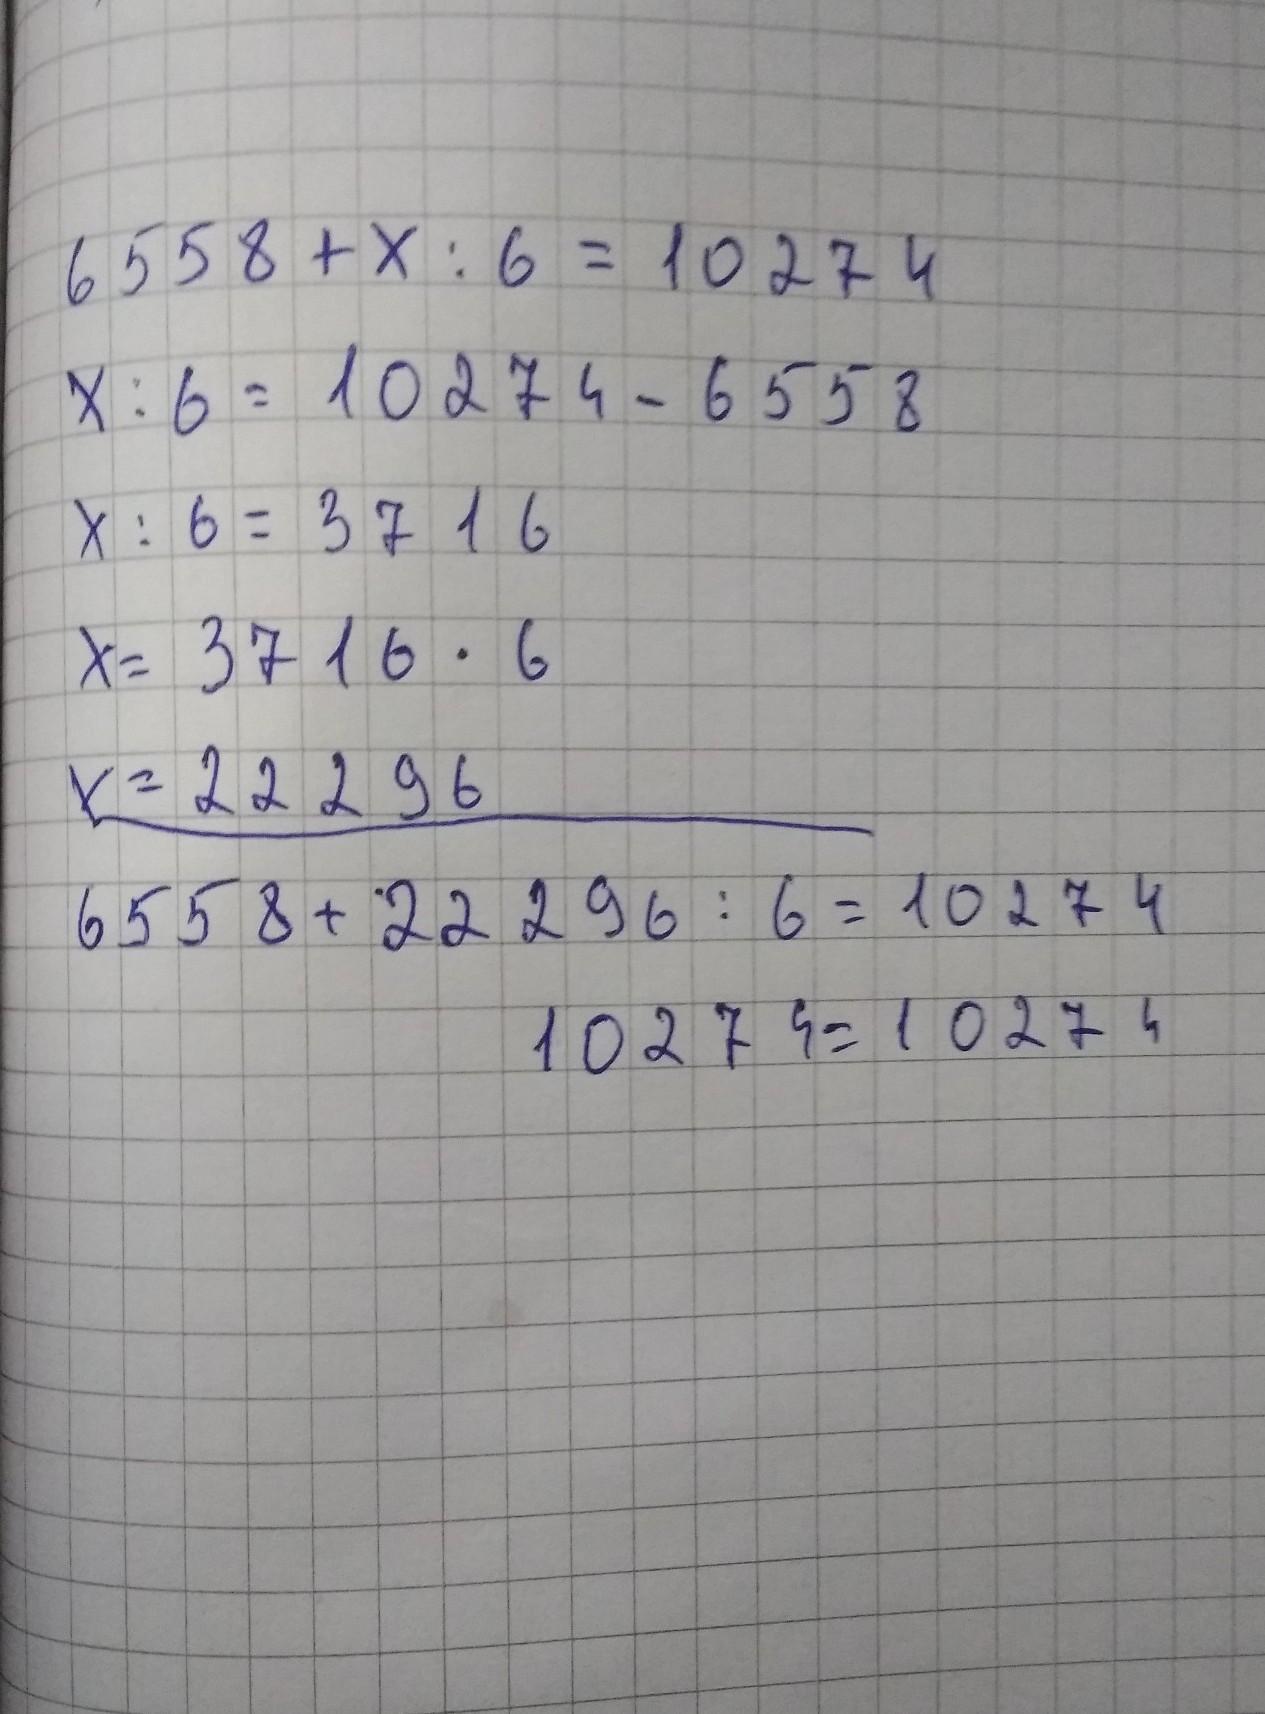 6558+x:6=10274
x:6=10274-6558
x:6=3716
x=3716·6
x=22296
6558+22296:6=10274
10274=10274